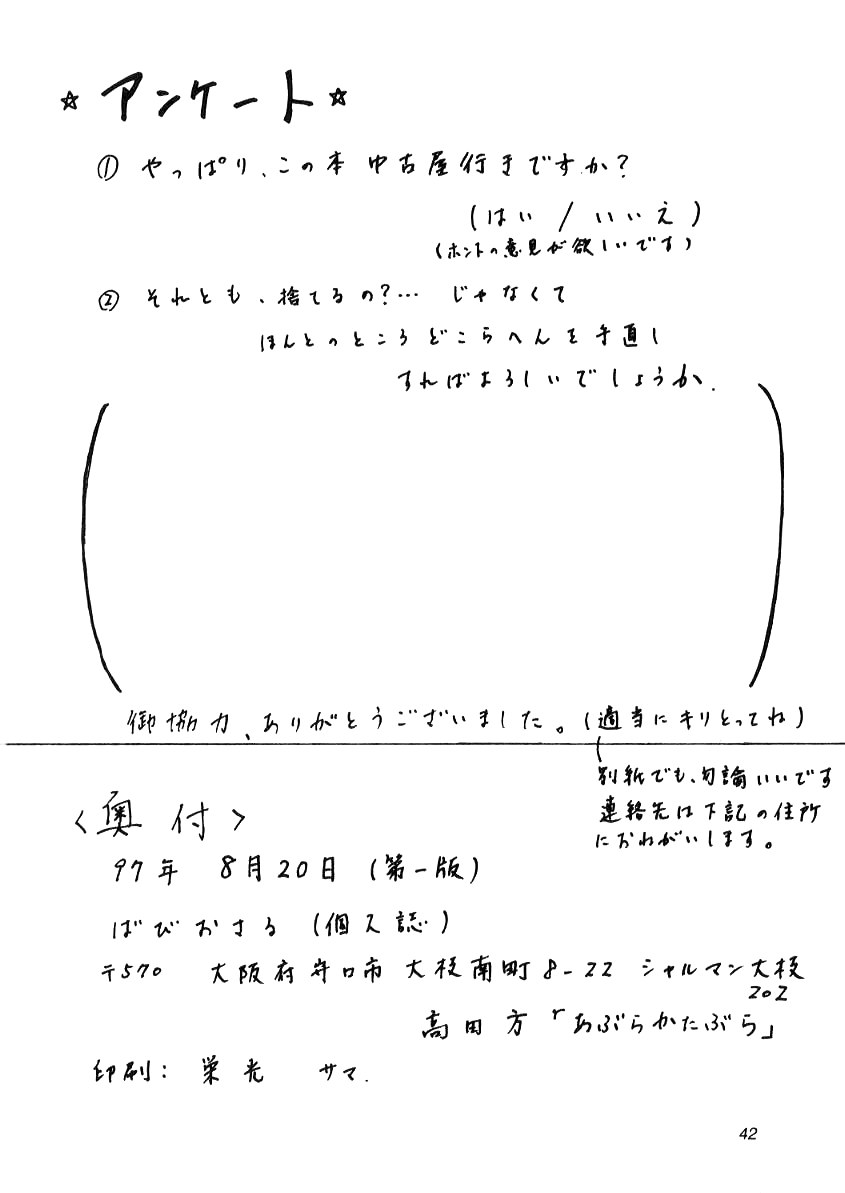 ☆アンケート☆
① やっぱり、この本 中古屋行きですか？
(はい / いいえ)
(ホントの意見が欲しいです)
② それとも、捨てるの？… じゃなくて
ほんとのところどこらへんを手直し
すればよろしいでしょうか.
御協力、ありがとうございました。(適当にキリとってね)
別紙でも、勿論いいです
連絡先は下記の住所
におねがいします。
<奥付>
97年 8月20日 (第一版)
ばびおさる (個人誌)
〒570 大阪府守口市 大枝南町8-22 シャルマン大枝
202
高田方「あぶらかたぶら」
印刷: 栄光 サマ.
42